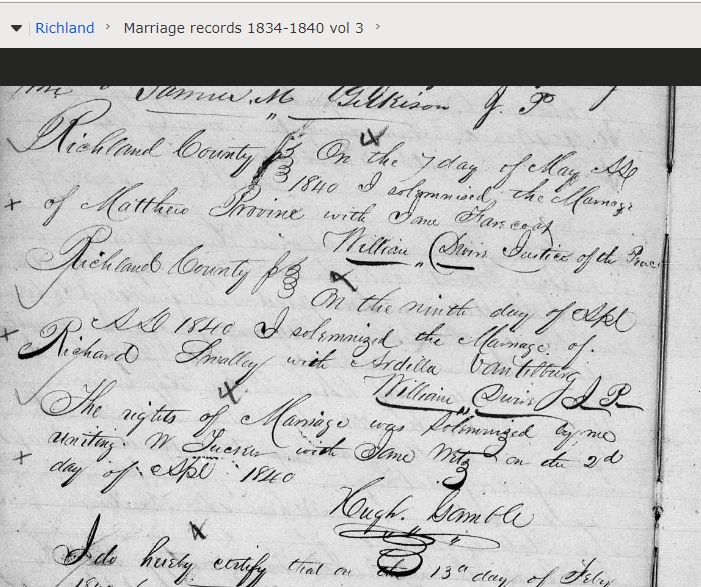 Richland › Marriage records 1834-1840 vol 3 ›
Samuel M Gilkison J. P
Richland County ss On the 7 day of May AD
1840 I solemnised the Marriage
of Matthew Provine with Jane
William Justice of the Peace
Richland County ss
On the ninth day of Apl
AD 1840 I solemnized the Marriage of
Richard Smalley with Ardilla Vantilburg
William J P
The rights of Marriage was Solemnized by me
uniting W with Jane on the 2d
day of Apl 1840
Hugh. Gamble
I do hereby certify that on the 13th day of Feby